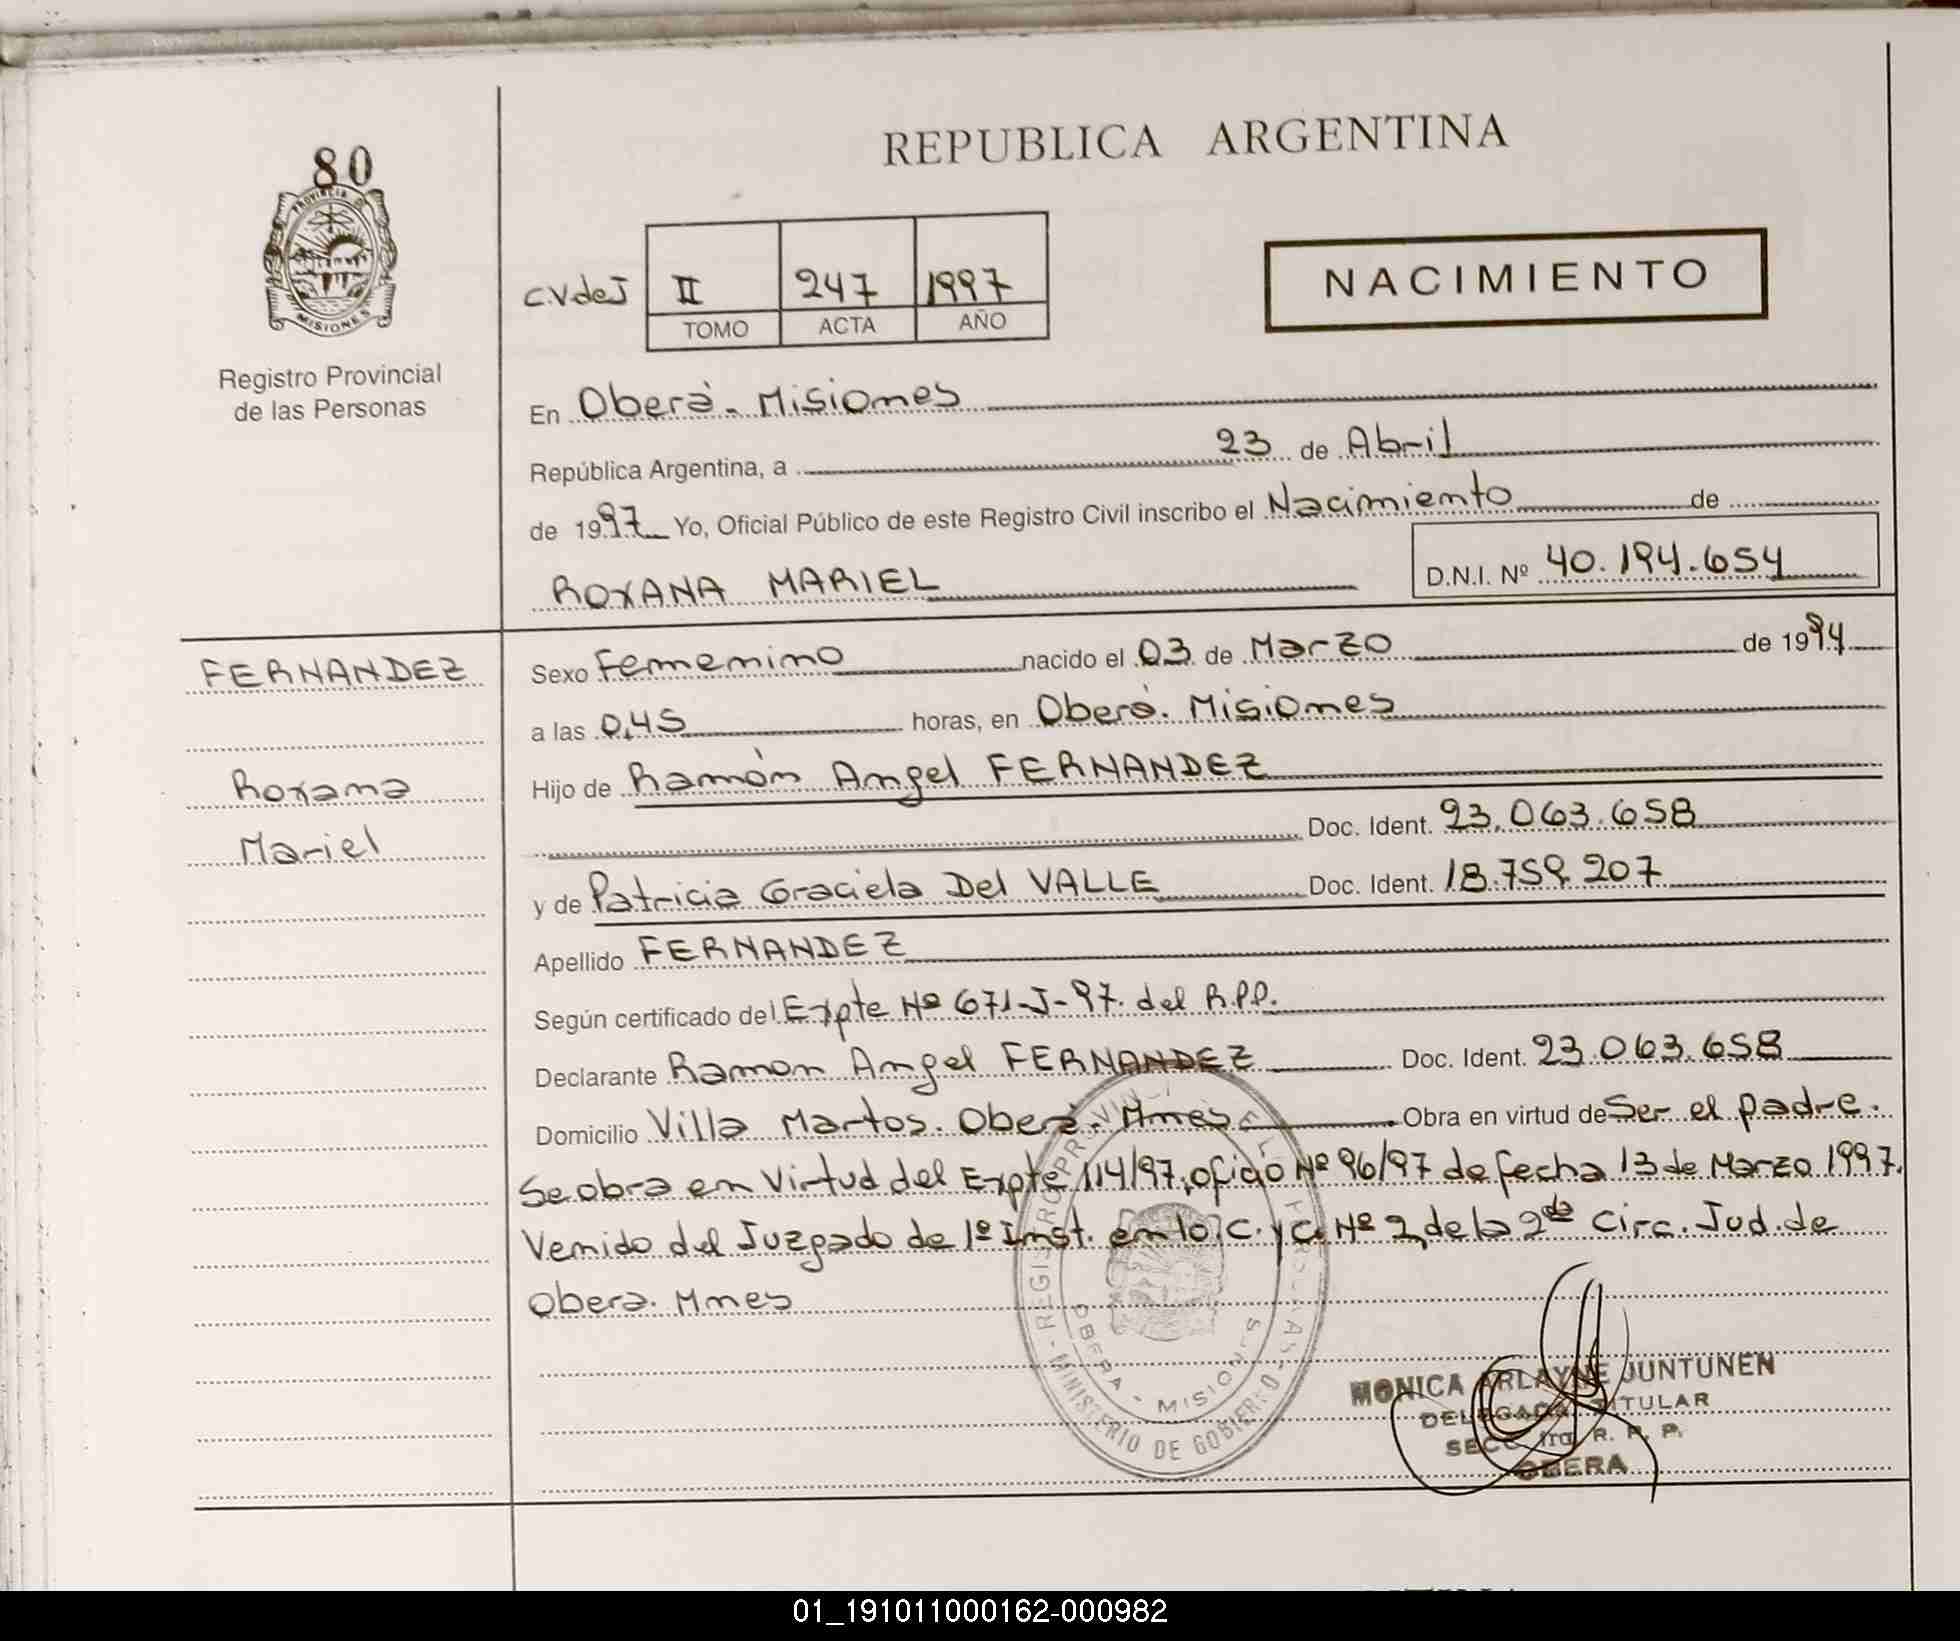 80
PROVINCIA D
MISIONES
Registro Provincial
de las Personas
REPUBLICA ARGENTINA
C.VdeJ
II 247 1997
TOMO ACTA AÑO
NACIMIENTO
En Oberà. Misiones
República Argentina, a 23 de Abril
de 1997 Yo, Oficial Público de este Registro Civil inscribo el Nacimiento de
ROXANA MARIEL
D.N.I. Nº 40.194.654
FERNANDEZ
Roxana
Mariel
Sexo Femenino nacido el 03 de Marzo de 1994
a las 0,45 horas, en Oberà. Misiones
Hijo de Ramón Angel FERNANDEZ
Doc. Ident. 23.063.658
y de Patricia Graciela Del VALLE Doc. Ident. 18.759.207
Apellido FERNANDEZ
Según certificado del Expte Nº 671-J-97. del R.P.P.
Declarante Ramon Angel FERNANDEZ Doc. Ident. 23.063.658
Domicilio Villa Martos. Oberà. Mnes Obra en virtud de Ser el padre.
Se obra en Virtud del Expte 114/97, oficio Nº 96/97 de fecha 13 de Marzo 1997.
Venido del Juzgado de 1º Inst. en lo C. y C. Nº 2, de la 2da Circ. Jud. de
Obera. Mnes
OBERA - MISIONES
MINISTERIO DE GOBIERNO
MONICA ARLAYNE JUNTUNEN
DELEGADA TITULAR
SECC 1ra R. P. P.
OBERA
01_191011000162-000982